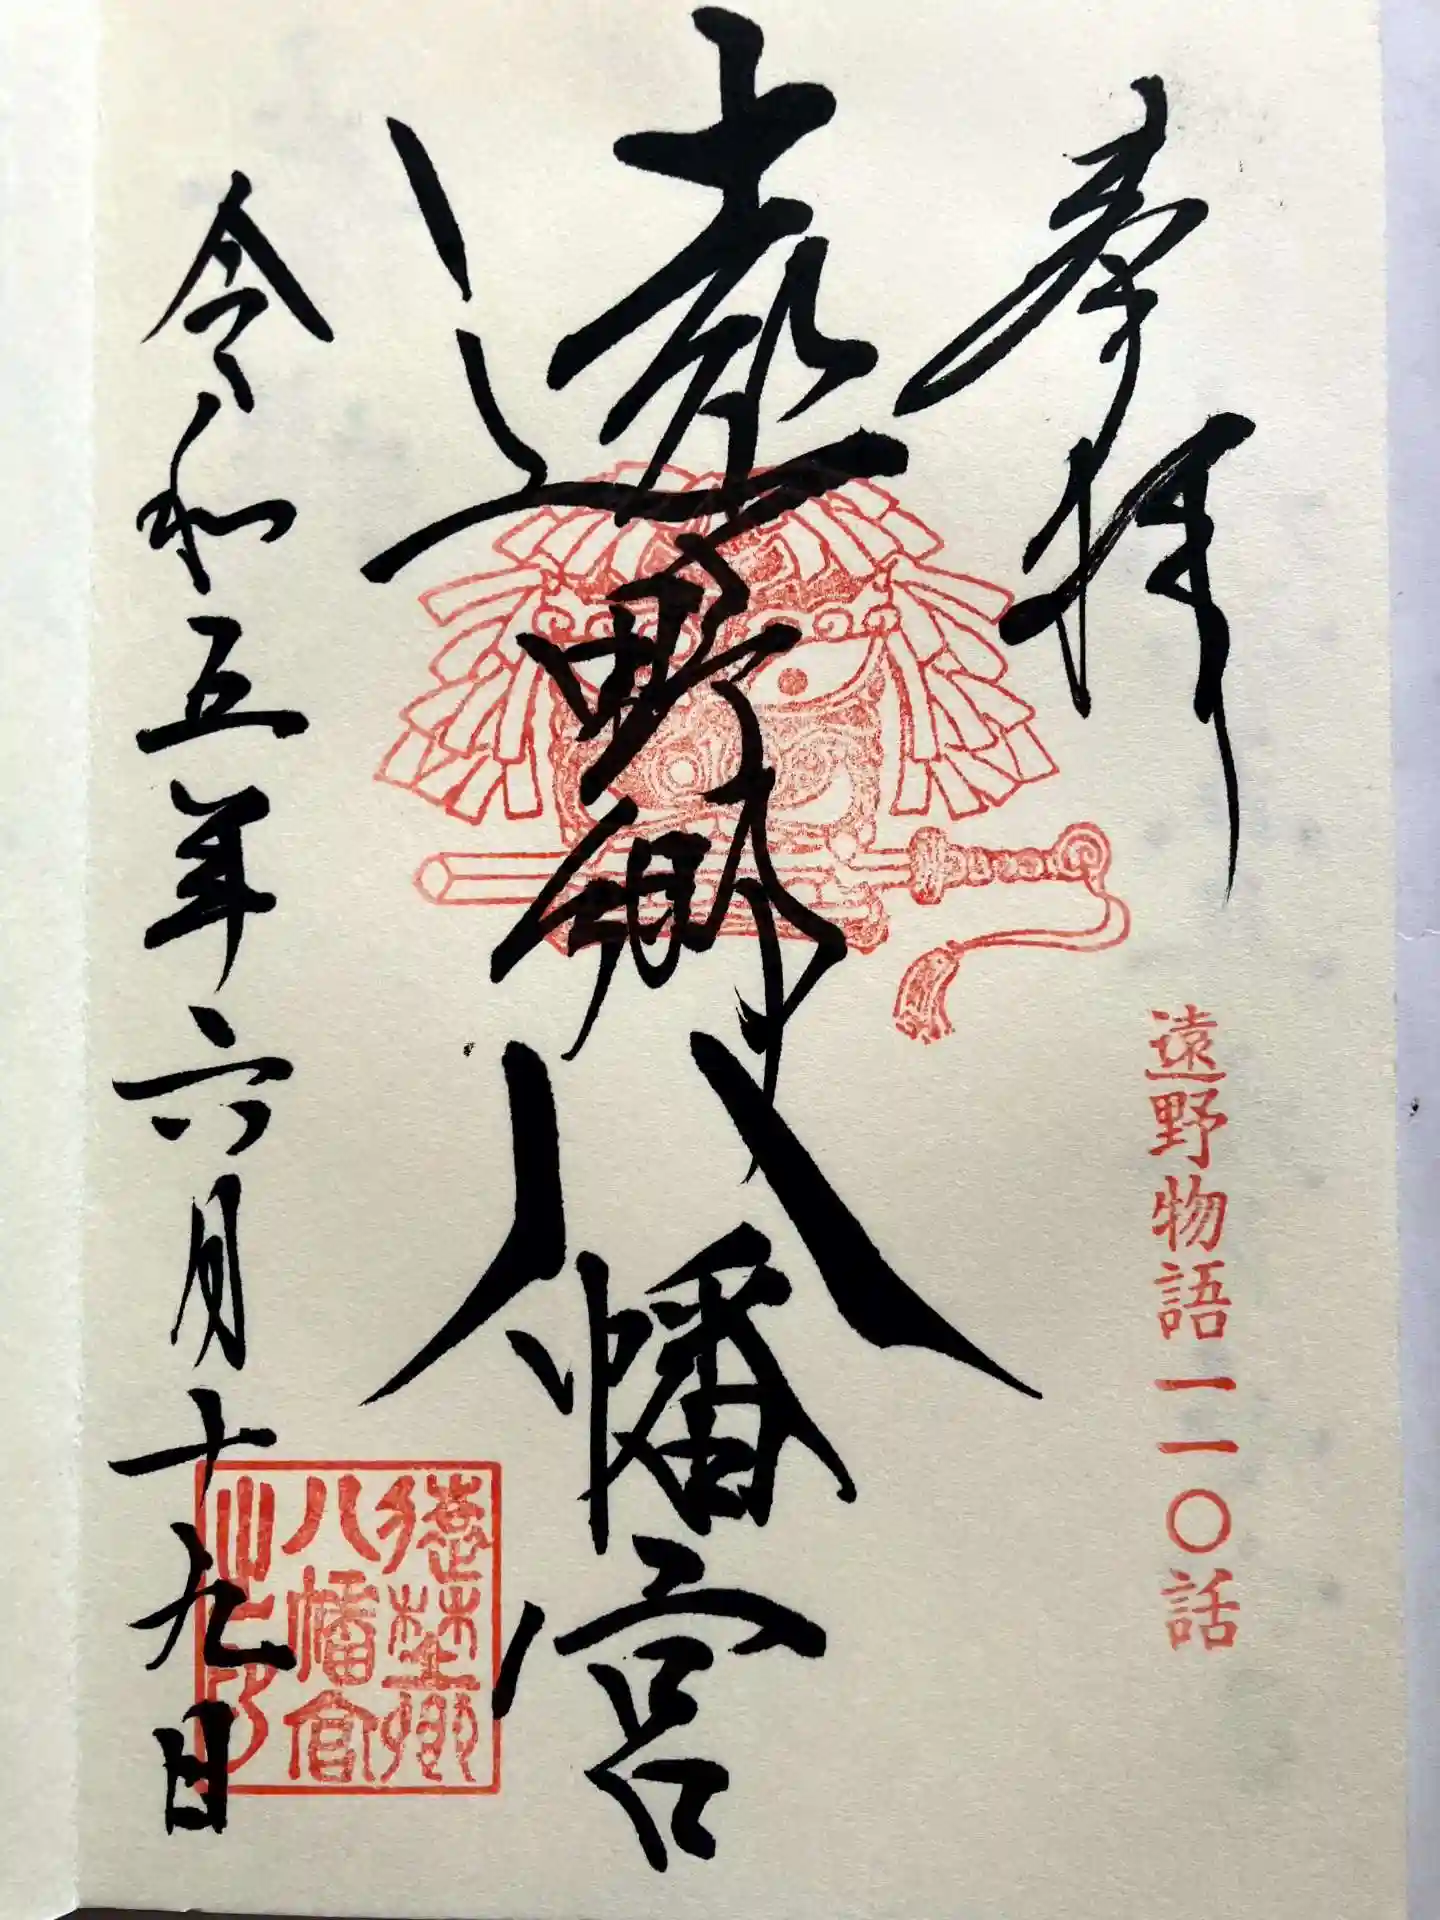 奉拝
遠野物語一一〇話
遠野郷八幡宮
遠野郷
八幡宮
之印
令和五年六月十九日